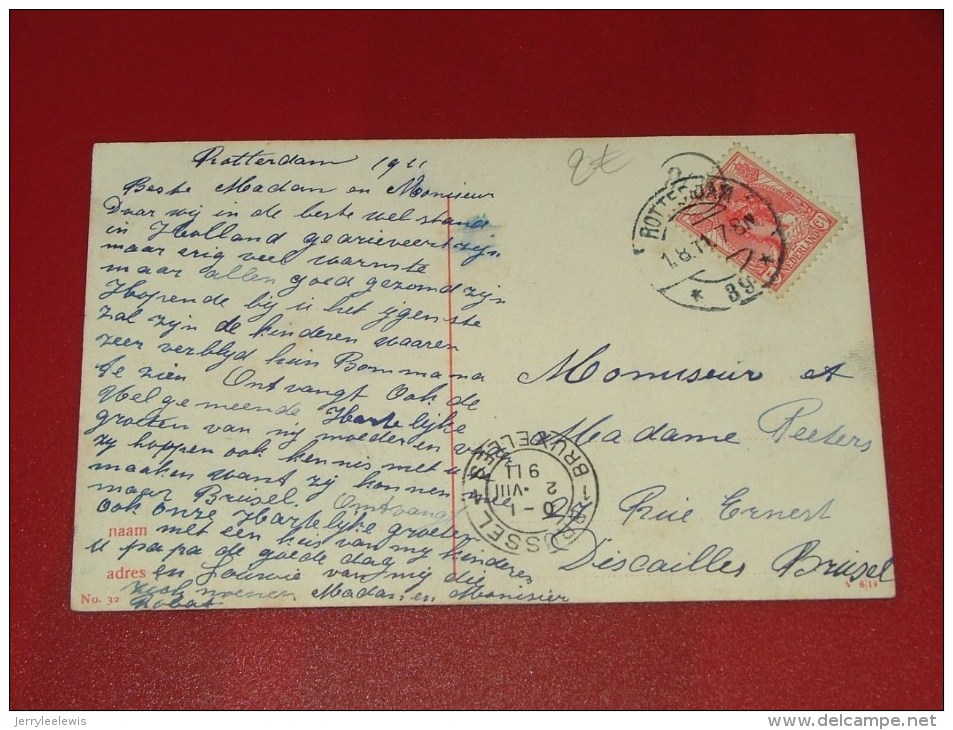 Rotterdam 1911
2€
Beste Madam en Monsieur
Daar wij in de beste welstand
in Holland gearieveert zijn
maar erig veel warmte
maar allen goed gezond zijn
Hopende bij u het ijgenste
Zal zijn de kinderen waaren
zeer verblyd hun Bommama
te zien Ontvangt Ook de
Welgemeende Hartelijke
groeten van mij moeder en
zy hoppen ook kennis met u
maaken want zy komen
naar Brusel Ontvangt
ook onze Hartelijke groeten
met een kus van my kinderen
u papa de goede dag
en van mij die
noemen Madam en Monisier
ROTTERDAM
1.8.11 7-8N
* 89 *
NEDERLAND
Monuseur et
Madame Peeters
Rue Ernest
Discailles Brusel
BRUXELLES
1911
2 VIII
BRUSSEL
naam
adres
No. 32
V 6/14
jerryleelewis
delcampe.net